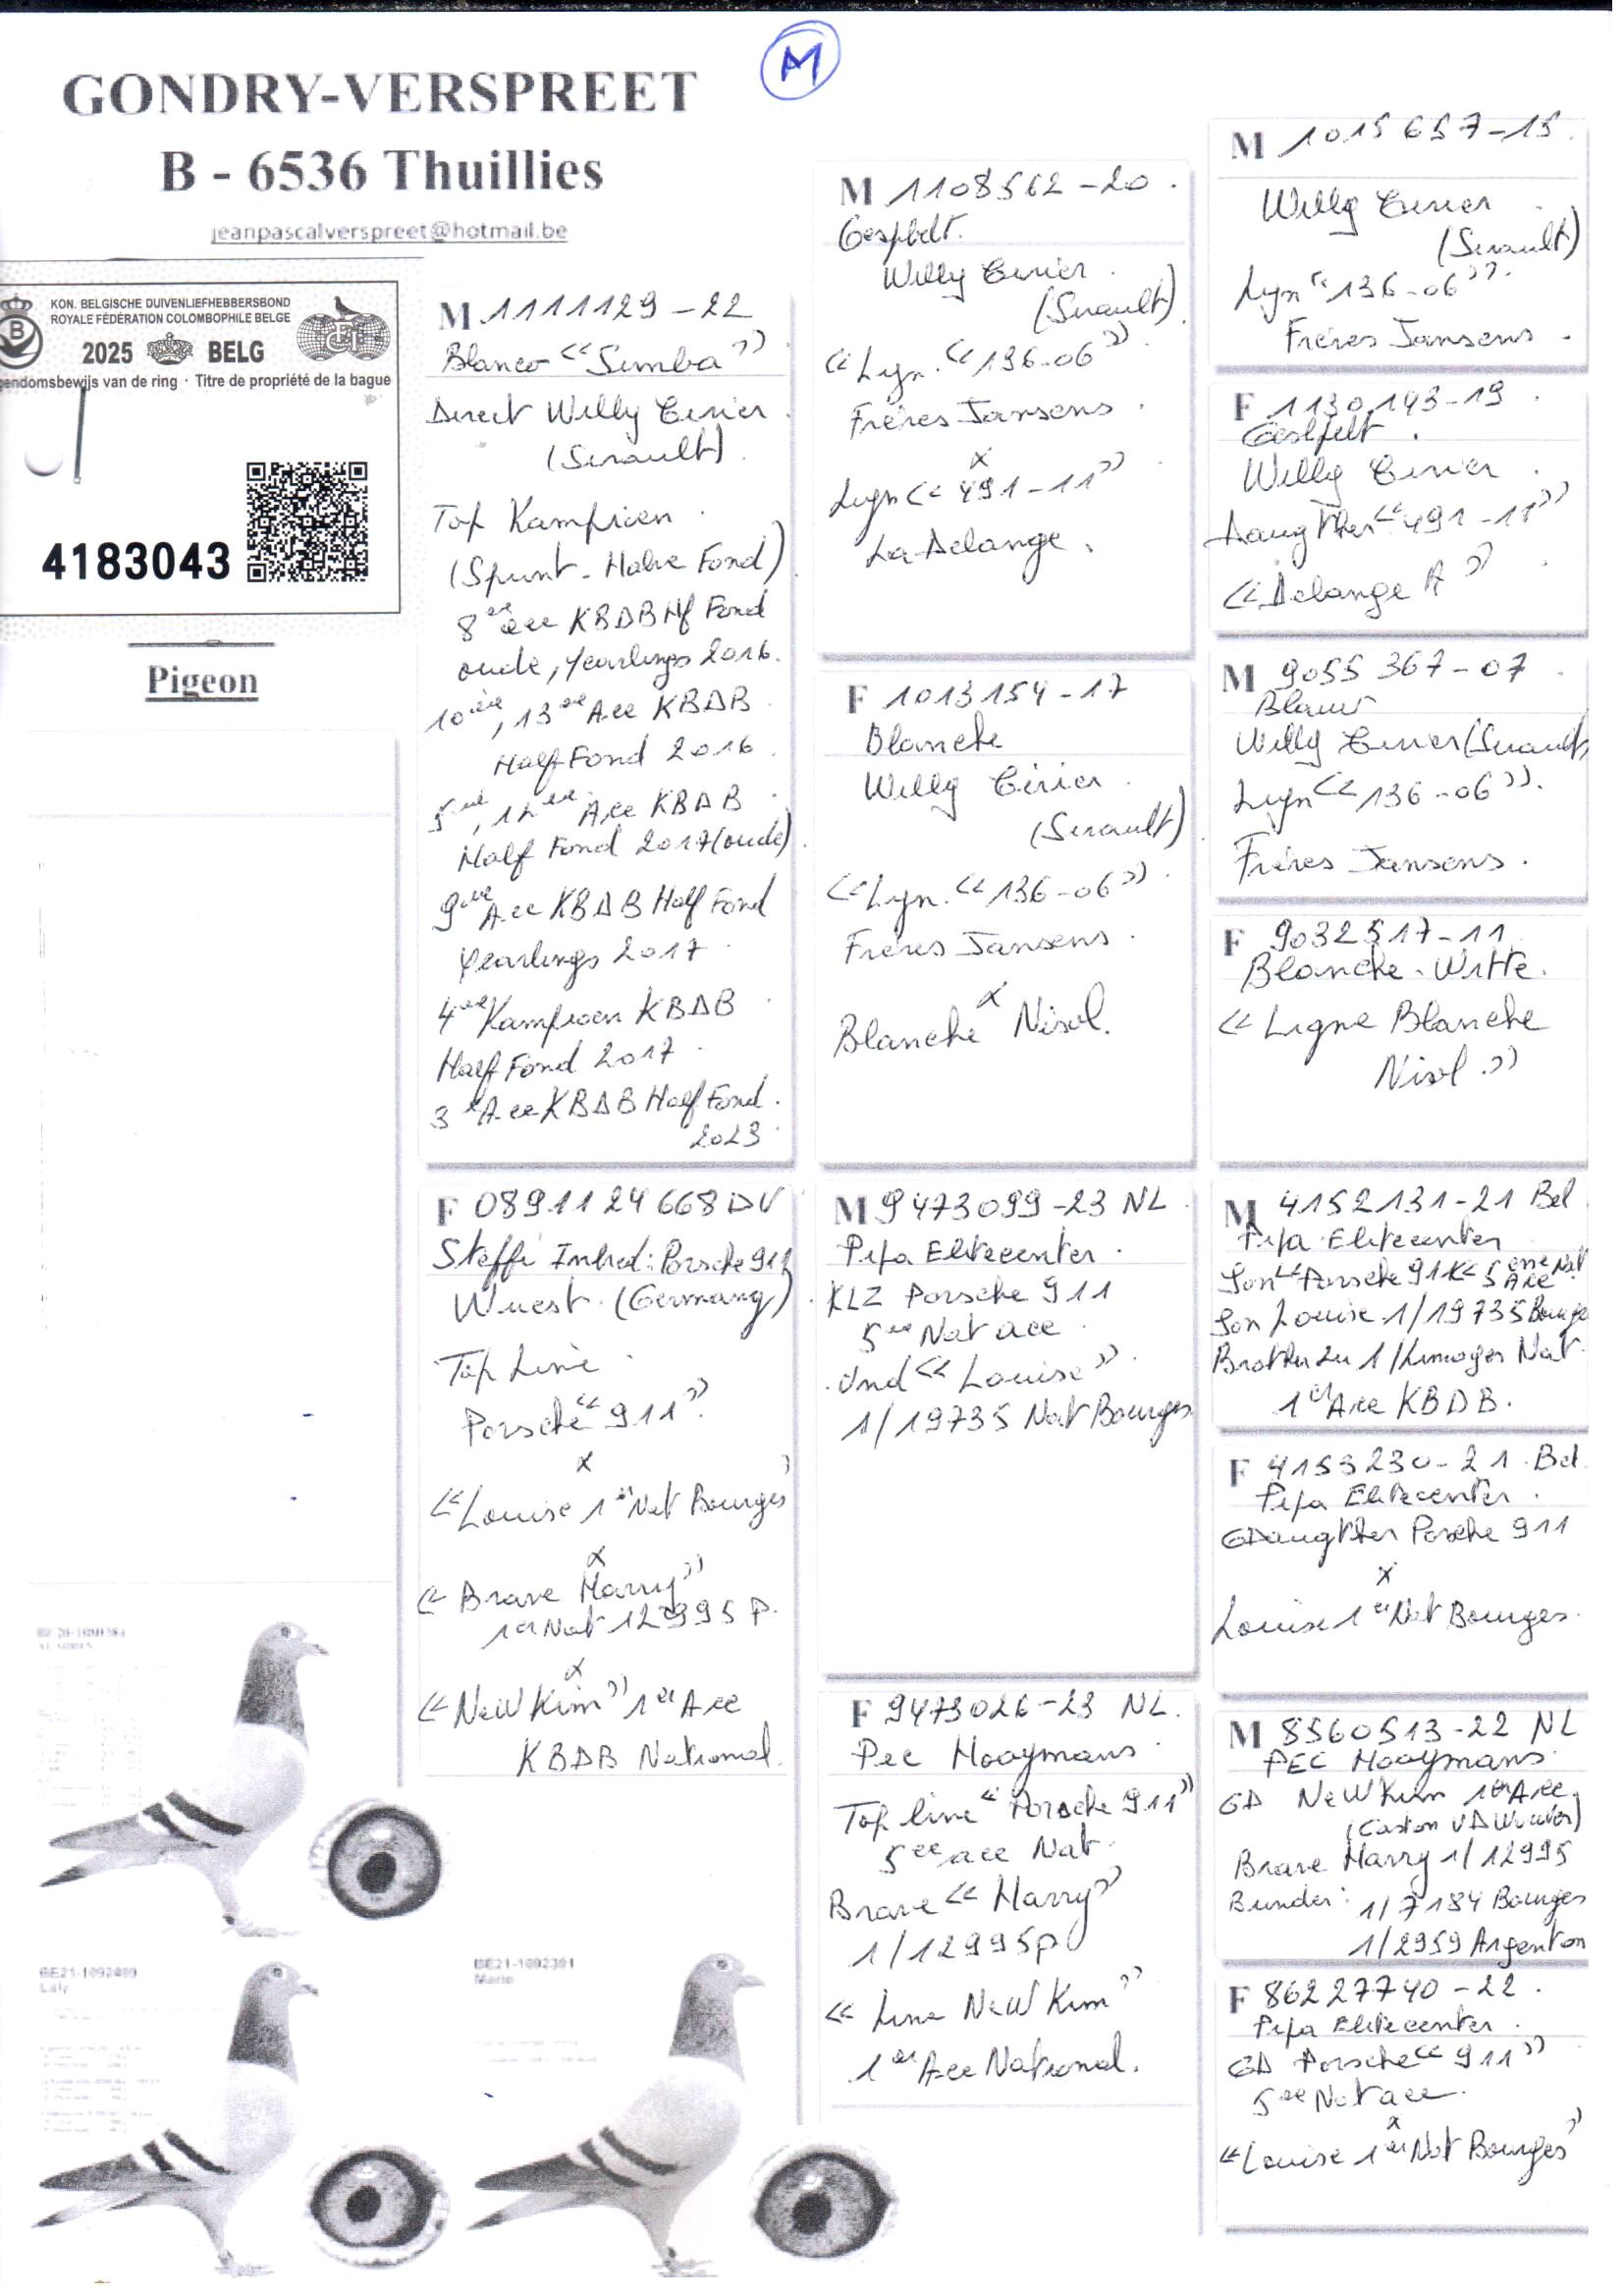 M
GONDRY-VERSPREET
B - 6536 Thuillies
jeanpascalverspreet@hotmail.be
KON. BELGISCHE DUIVENLIEFHEBBERSBOND
ROYALE FÉDÉRATION COLOMBOPHILE BELGE
B
FCI
2025 BELG
gendomsbewijs van de ring · Titre de propriété de la bague
4183043
Pigeon
M 1111129-22
Blanco "Simba"
Direct Willy Cirier
(Sirault)
Top Kampioen
(Spurt - Halve Fond)
8 Ace KBDB Hf Fond
oude, Yearlings 2016.
10, 13 Ace KBDB
Half Fond 2016
5, 12 Ace KBDB
Half Fond 2017 (oude)
9 Ace KBDB Half Fond
Yearlings 2017
4 Kampioen KBDB
Half Fond 2017
3 Ace KBDB Half Fond.
2023
F 089 11 24 668 DV
Steffi Inbred: Porsche 911
Wuest (Germany)
Top Line
Porsche "911"
x
"Louise 1er Nat Bourges
x
"Brave Harry"
1er Nat 12995 P.
x
"New Kim" 1er Ace
KBDB National.
M 1108562-20
Gespbelt.
Willy Cirier
(Sirault)
"Lyn. "136-06"
Frères Jansens
x
Lyn "491-11"
La Delange
F 1013154-17
Blanche
Willy Cirier
(Sirault)
"Lyn. "136-06"
Frères Jansens
x
Blanche Nisol.
M 9473099-23 NL
Pipa Elitecenter
KLZ Porsche 911
5 Nat ace
Und "Louise"
1/19735 Nat Bourges
F 9473026-23 NL.
Pec Hooymans
Top line "Porsche 911"
5 ace Nat
Brave "Harry"
1/12995p
"Line New Kim"
1er Ace National.
M 1015657-15
Willy Cirier
(Sirault)
Lyn "136-06"
Frères Jansens
F 1130143-19
Willy Cirier
Daugther "491-11"
"Delange A"
M 9055367-07
Blauw
Willy Cirier (Sirault)
Lyn "136-06"
Frères Jansens.
F 9032517-11
Blanche - Witte.
"Ligne Blanche
Nisol."
M 4152131-21 Bel
Pipa Elitecenter
Son "Porsche 911" 5eme Nat Ace
Son Louise 1/19735 Bourges
Brother zu 1/Limoges Nat
1er Ace KBDB.
F 4153230-21 Bel
Pipa Elitecenter
GDaugther Porsche 911
x
Louise 1er Nat Bourges
M 8560513-22 NL
PEC Hooymans
GD New Kim 1er Ace
(Gaston VD Wouwer)
Brave Harry 1/12995
1/7184 Bourges
1/2959 Argenton
F 86227740-22
Pipa Elitecenter
GD Porsche "911"
5 Nat ace
x
"Louise 1er Nat Bourges"
BE21-1092409
BE21-1092391